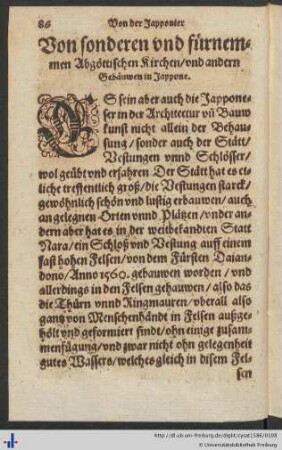 86 Von der Japponier
Von sonderen vnd fürnem-
men Abgöttischen Kirchen/vnd andern
Gebäuwen in Jappone.
ES sein aber auch die Jappone-
ser in der Architectur vñ Bauw
kunst nicht allein der Behau-
sung/sonder auch der Stätt/
Vestungen vnnd Schlösser/
wol geübt vnd erfahren Der Stätt hat es et-
liche treffentlich groß/die Vestungen starck/
gewöhnlich schön vnd lustig erbauwen/auch
an gelegnen Orten vnnd Plätzen/vnder an-
dern aber hat es in der weitbekandten Statt
Nara/ein Schloß vnd Vestung auff einem
fast hohen Felsen/von dem Fürsten Daian-
dono/Anno 1560. gebauwen worden/vnd
allerdings in den Felsen gehauwen/also das
die Thürn vnnd Ringmauren/vberall also
gantz von Menschenhändt in Felsen außge-
hölt vnd geformiert sindt/ohn einige zusam-
menfügung/vnd zwar nicht ohn gelegenheit
gutes Wassers/welches gleich in disem Fel-
sen
http://dl.ub.uni-freiburg.de/diglit/cysat1586/0108
© Universitätsbibliothek Freiburg